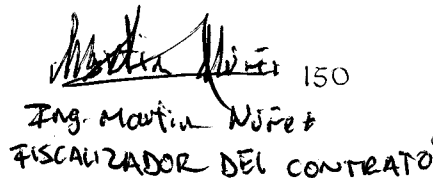 Martin Núñez 150
Ing. Martin Núñez
FISCALIZADOR DEL CONTRATO